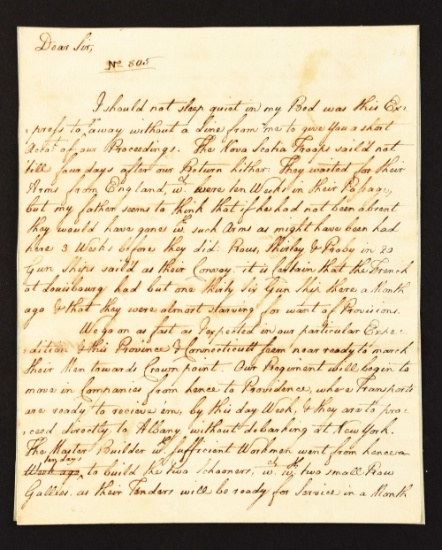 Dear Sir,
No 805
I should not sleep quiet in my Bed was this Ex-
press to away without a Line from me to give you a short
Acct of our Proceedings. The Nova Scotia Troops saild not
till four days after our Return hither. They waited for their
Arms from England, wh were ten Weeks in their Passage,
but my father seems to think that if he had not been absent
they would have gone wth such Arms as might have been had
here 3 Weeks before they did. Rous, Shirley & Proby in 20
Gun Ships saild as their Convoy. it is certain that the French
at Louisbourg had but one thirty Six Gun Ship there a Month
ago & that they were almost starving for want of Provisions.
We go on as fast as Expected in our particular Expe-
dition & this Province & Connecticutt seem near ready to march
their Men towards Crown point. Our Regiment will begin to
move in Companies from hence to Providence, where Transports
are ready to recieve em, by this day Week, & they are to pro-
ceed directly to Albany without debarking at New York.
The Master Builder wth sufficient Workmen went from hence a
ten days
Week ago to build the two Schooners, wh wth two small Row
Gallies as their Tenders will be ready for Service in a Month